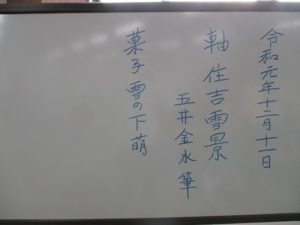 令和元年十二月十一日
軸 住吉雪景
五井金水 筆
菓子 雪の下萌